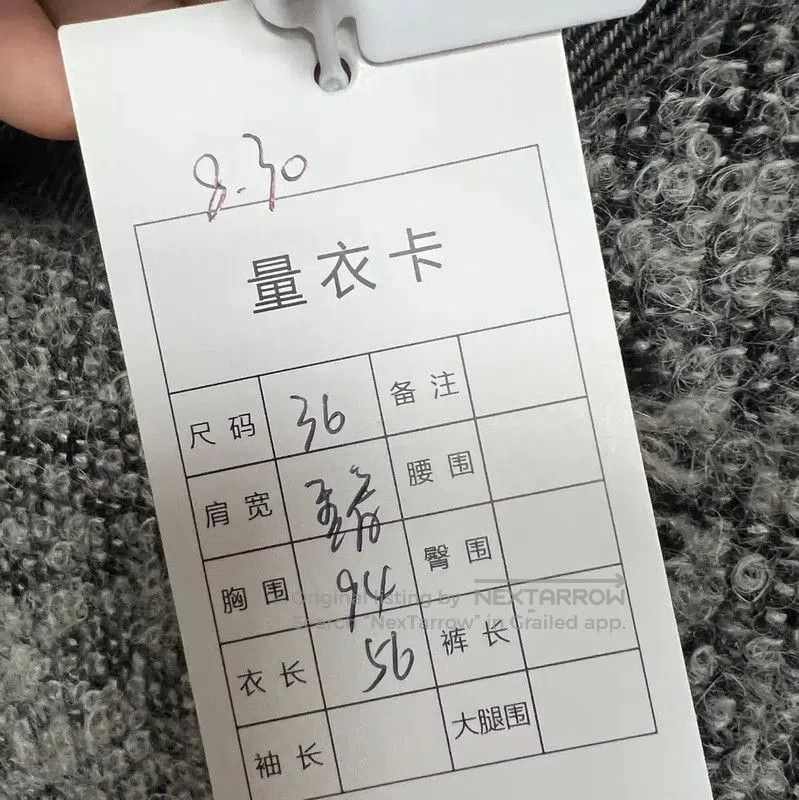 8.30
量衣卡
尺码 36 备注
肩宽 腰围
胸围 94 臀围
Original listing by NEXTARROW
Search "NexTarrow" in Grailed app.
衣长 56 裤长
袖长 大腿围